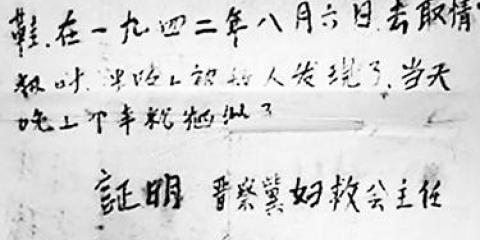 鞋.在一九四二年八月六日.去取情
报时.半路上被敌人发现了.当天
晚上不幸就牺牲了
証明 晋察冀妇救会主任